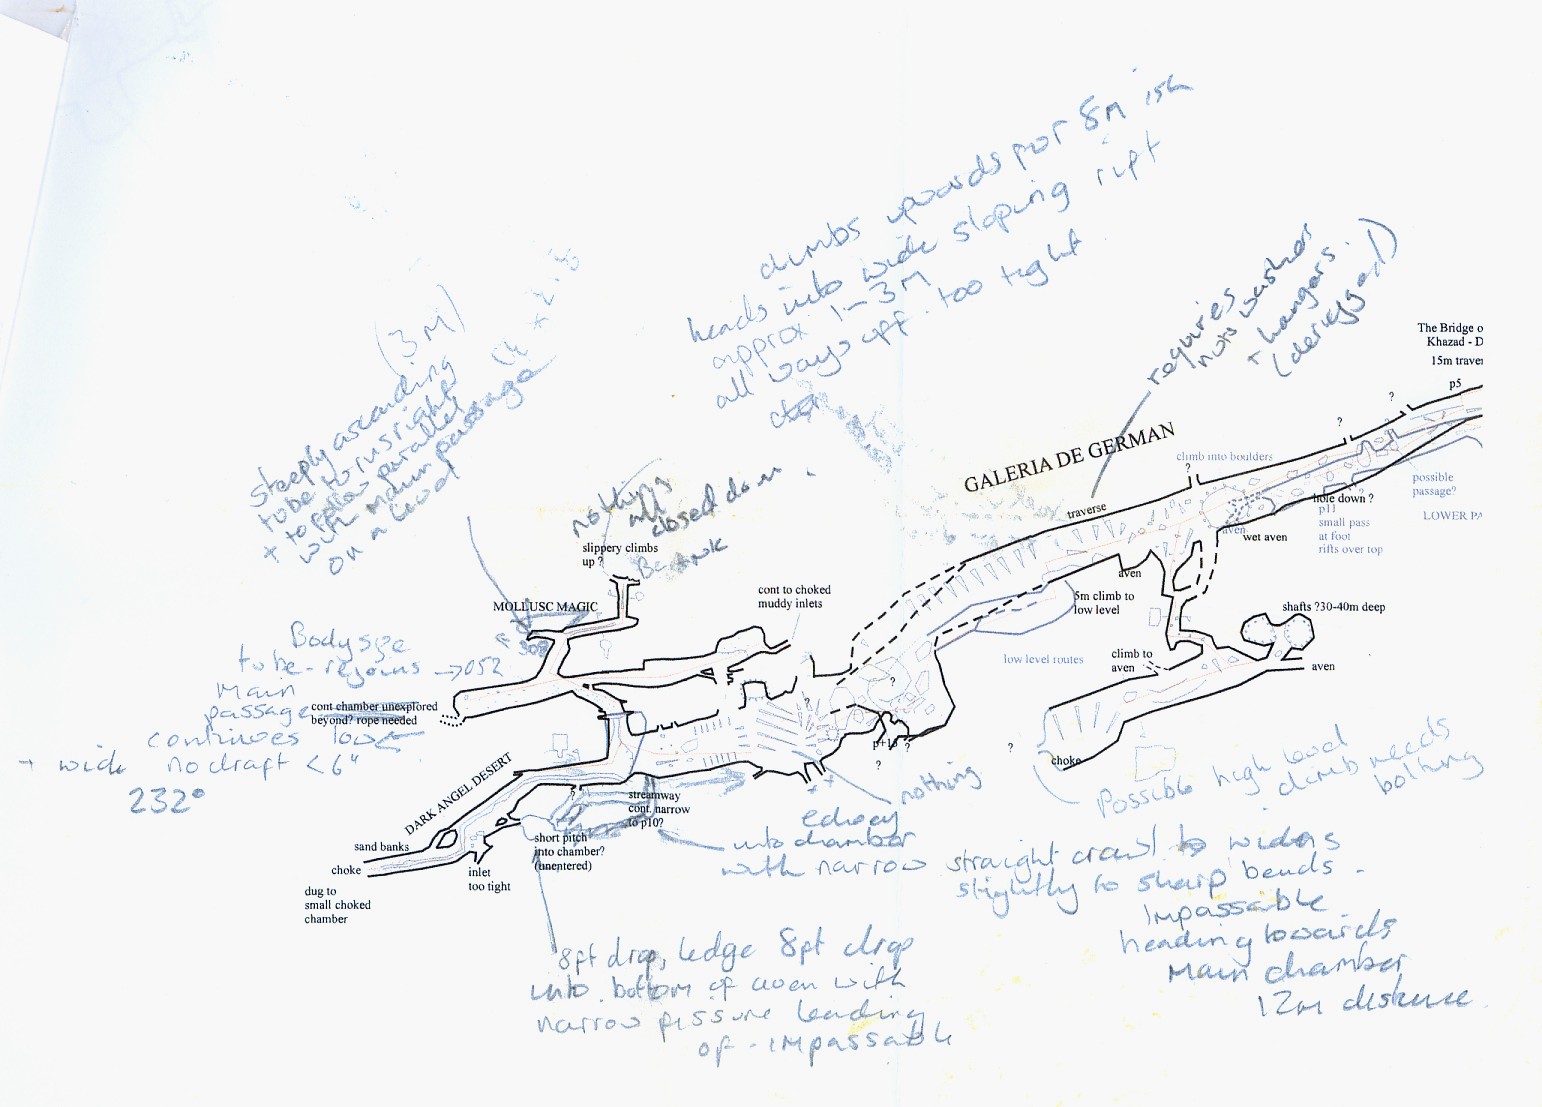 climbs upwards for 8m ish
heads into wide sloping rift
approx 1-3M
all ways off too tight
requires
nuts washers
+ hangars
(derigged)
The Bridge o
Khazad - D
15m traver
p5
?
?
?
GALERIA DE GERMAN
climb into boulders
possible
passage?
LOWER PA
hole down ?
p11
small pass
at foot
rifts over top
traverse
aven
wet aven
aven
5m climb to
low level
shafts ?30-40m deep
low level routes
climb to
aven
aven
(3M)
steeply ascending
tube to ins right
to follow parallel
with main passage
on a level
nothing
all
closed down
slippery climbs
up ?
MOLLUSC MAGIC
cont to choked
muddy inlets
Body size
tube - rejoins → 052
Main
passage
continues low
+ wide no draft <6"
232°
cont chamber unexplored
beyond? rope needed
?
?
p+15
?
?
?
choke
Possible high level
climb needs
bolting
nothing
DARK ANGEL DESERT
?
streamway
cont. narrow
to p10?
short pitch
into chamber?
(unentered)
sand banks
choke
inlet
too tight
dug to
small choked
chamber
echoey
into chamber
with narrow straight crawl to widens
slightly to sharp bends.
Impassable
heading towards
Main chamber
12m distance
8ft drop, ledge 8ft drop
into bottom of aven with
narrow fissure leading
of - impassable